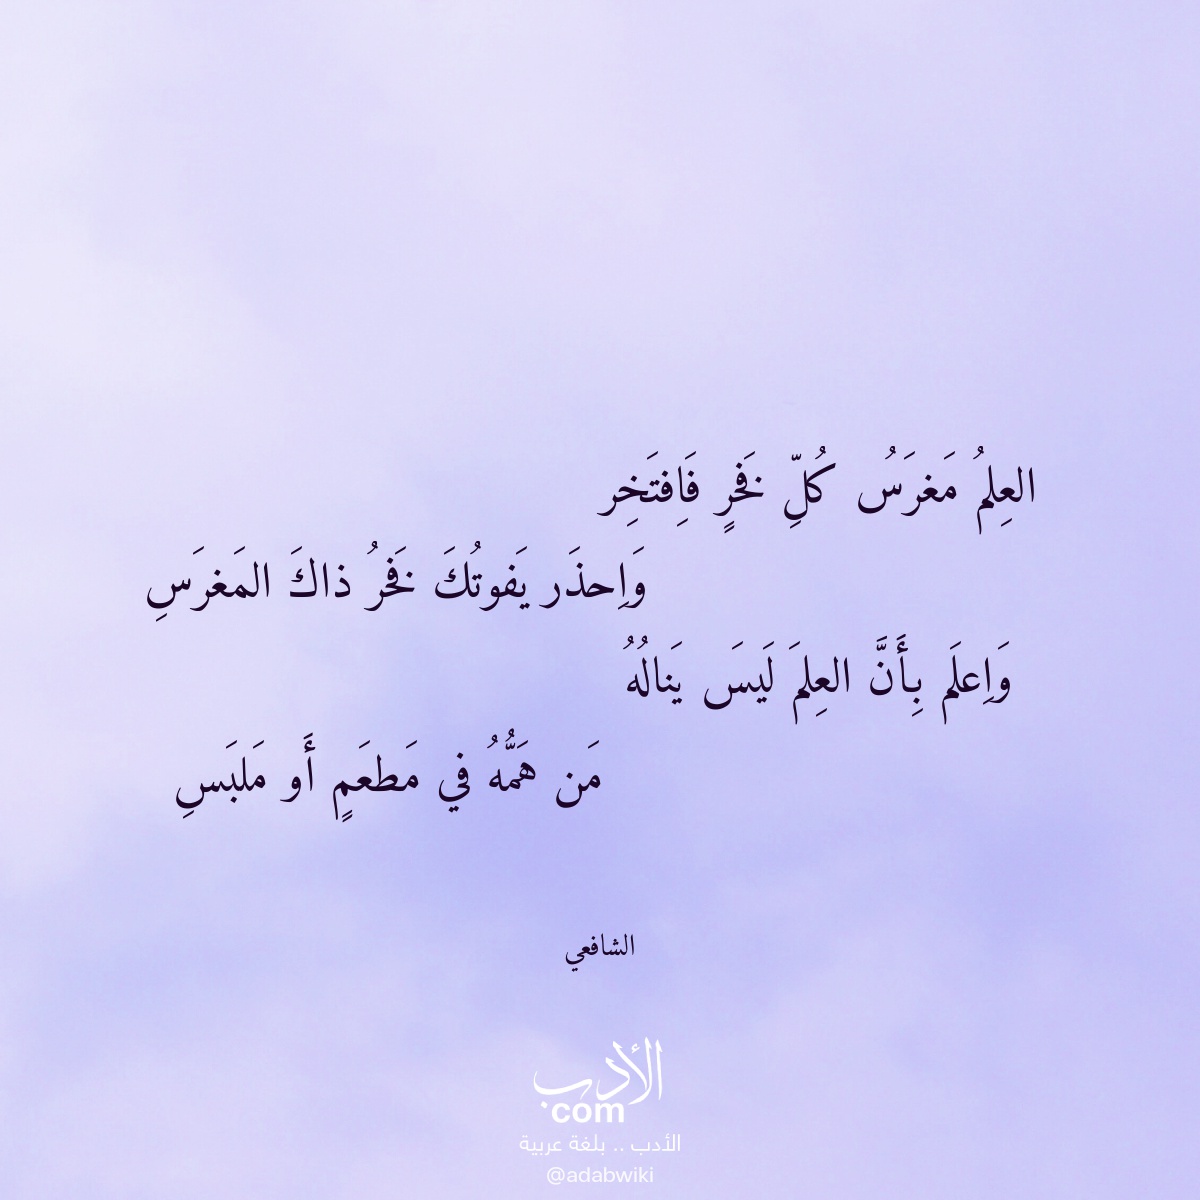 العِلمُ مَغرَسُ كُلِّ فَخرٍ فَاِفتَخِر
وَاِحذَر يَفوتُكَ فَخرُ ذاكَ المَغرَسِ
وَاِعلَم بِأَنَّ العِلمَ لَيسَ يَنالُهُ
مَن هَمُّهُ في مَطعَمٍ أَو مَلبَسِ
الشافعي
الأدب
com
الأدب .. بلغة عربية
@adabwiki